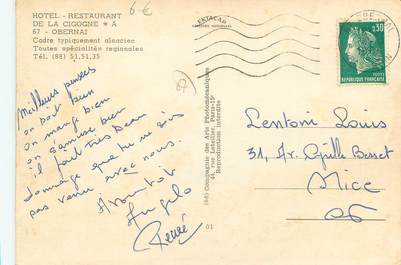 HOTEL - RESTAURANT
DE LA CIGOGNE * A
67 - OBERNAI
Cadre typiquement alsacien
Toutes spécialités regionales
Tél. (88) 51.51.35
6 €
ESTACAR
67
0,30
POSTES
REPUBLIQUE FRANÇAISE
Meilleures pensées
on boit bien
on mange bien
on s'amuse bien
il fait très beau
dommage que tu ne sois
pas venu avec nous.
A bientôt
Angelo
Renée
(68) Compagnie des Arts Photomécaniques
44, rue Letellier, Paris-15e
Reproduction interdite
01
Lentoni Louis
31, Av. Cyrille Besset
Nice
06